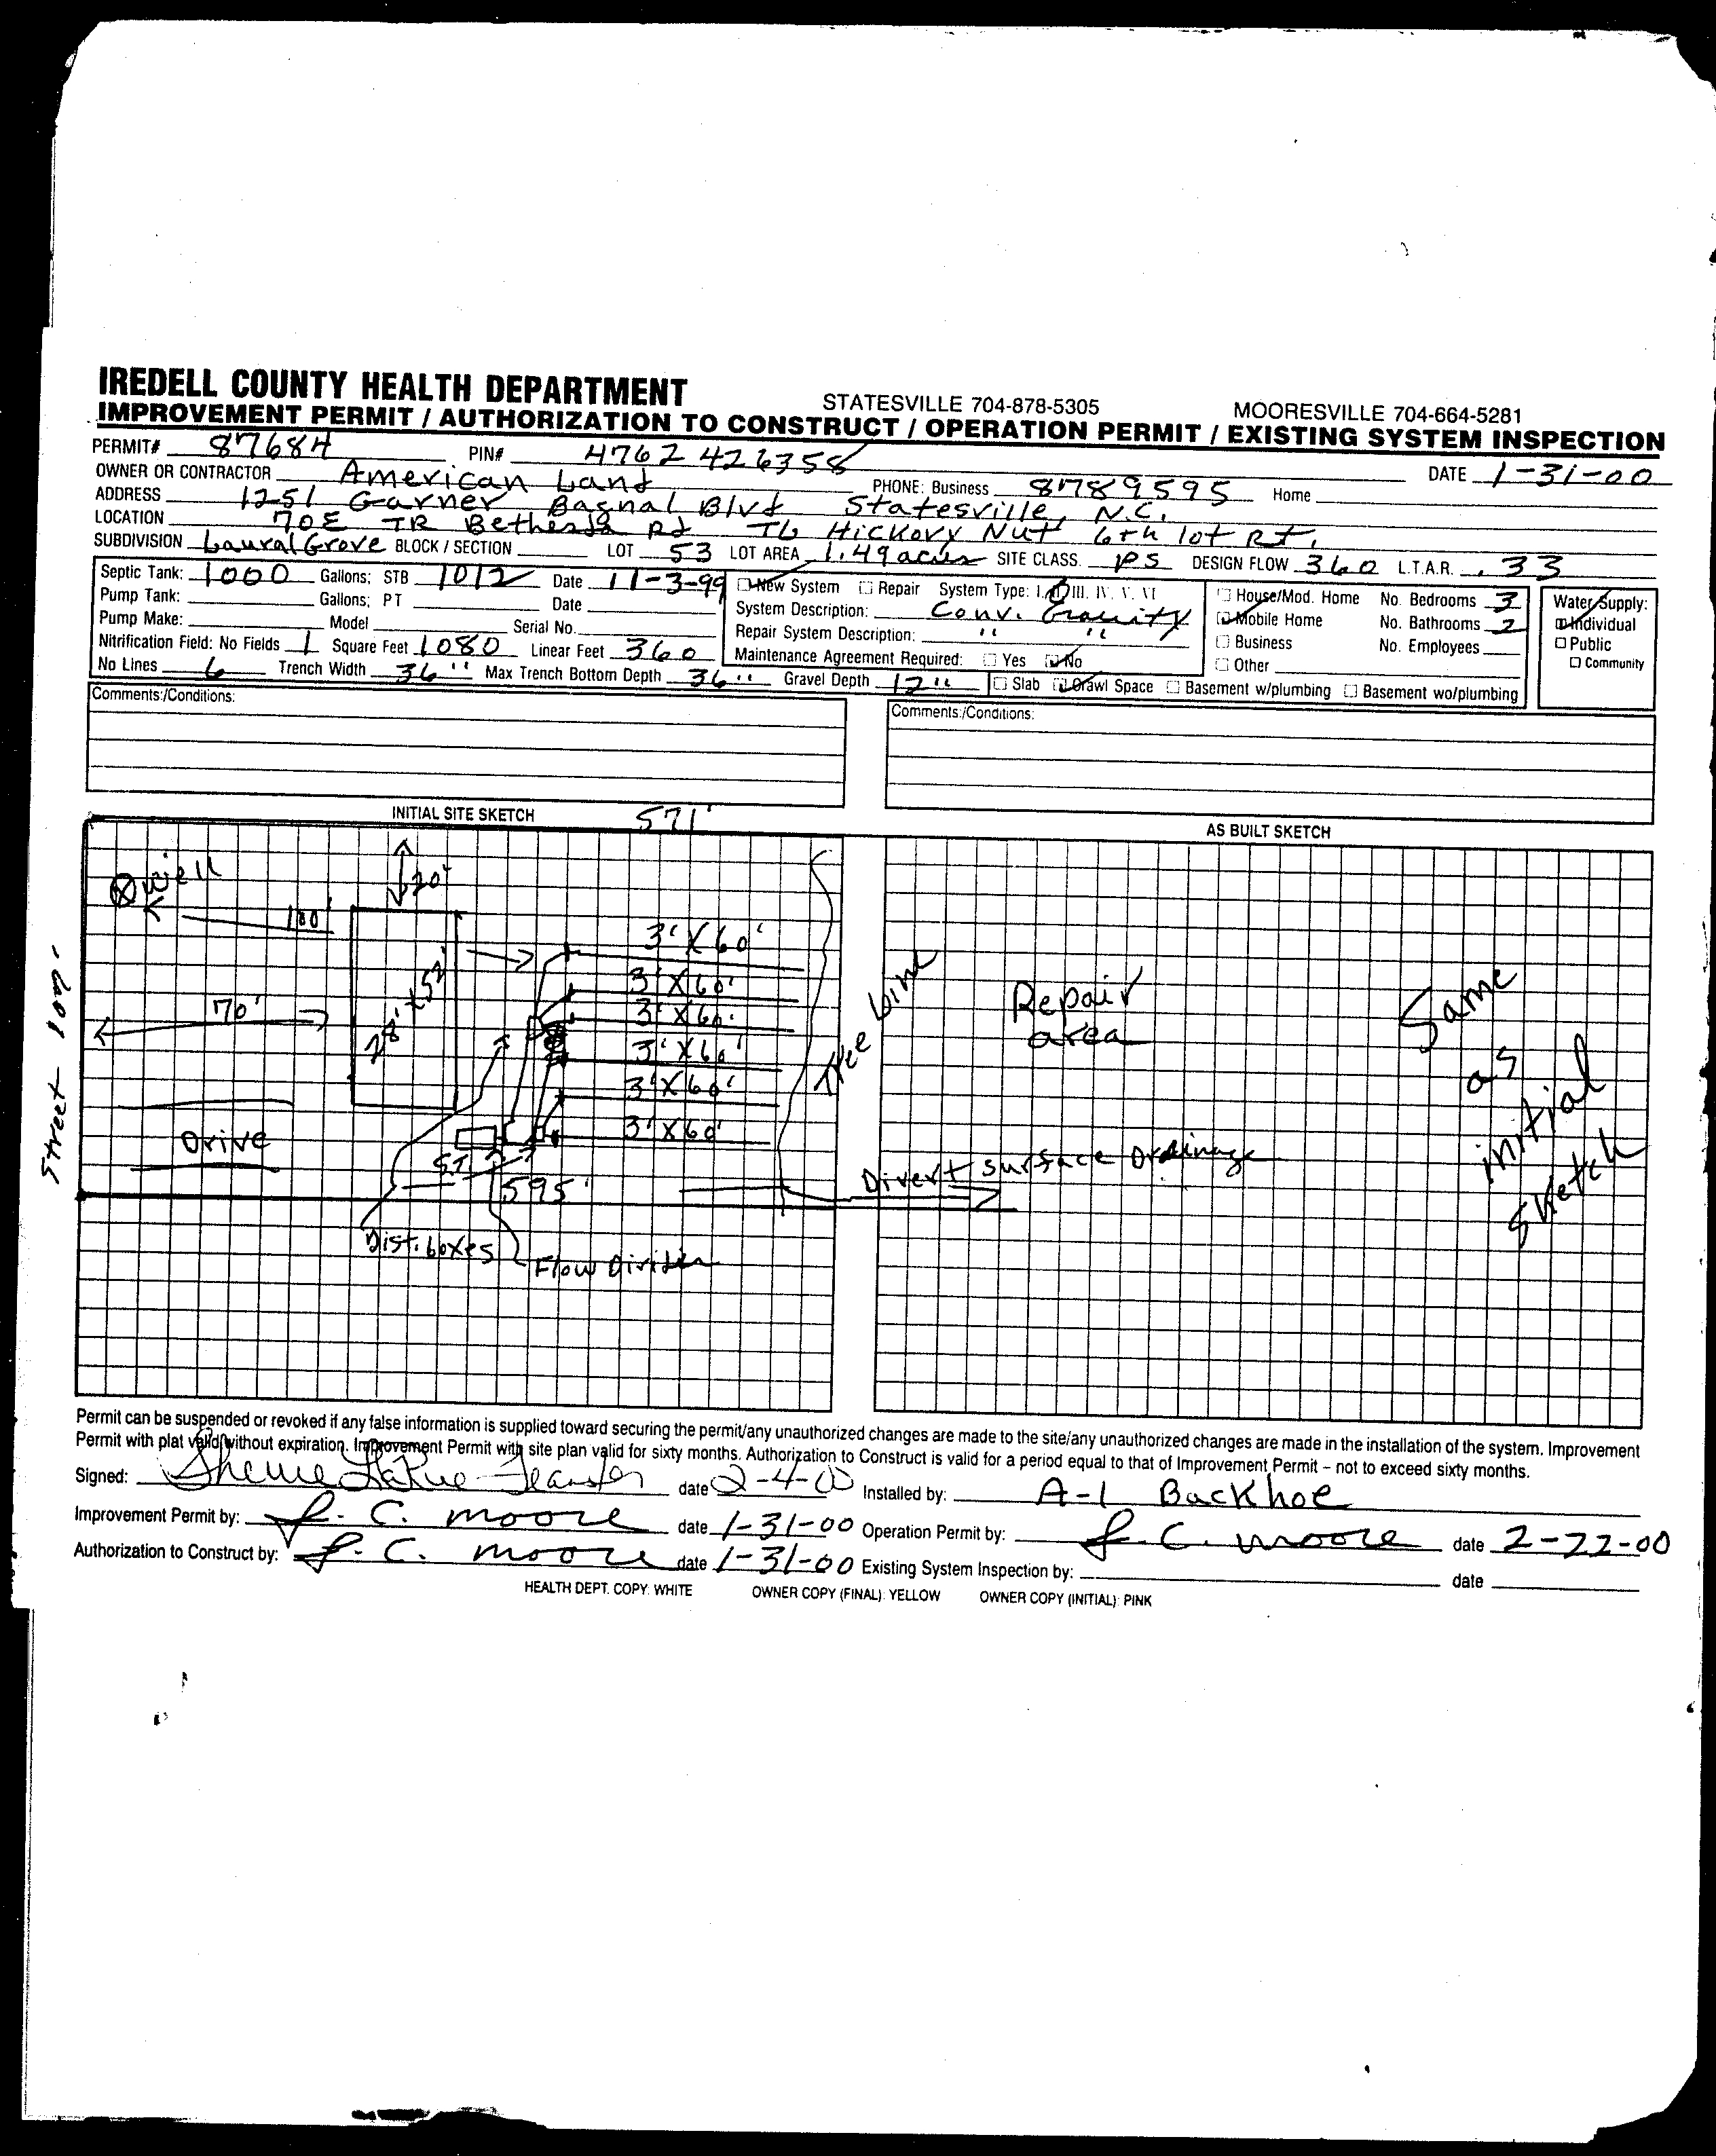 IREDELL COUNTY HEALTH DEPARTMENT STATESVILLE 704-878-5305 MOORESVILLE 704-664-5281
IMPROVEMENT PERMIT / AUTHORIZATION TO CONSTRUCT / OPERATION PERMIT / EXISTING SYSTEM INSPECTION
PERMIT# 87684 PIN# 4762 426358 DATE 1-31-00
OWNER OR CONTRACTOR American Land PHONE: Business 8789595 Home
ADDRESS 1251 Garner Bagnal Blvd Statesville, N.C.
LOCATION 70E TR Bethesda Rd TL Hickory Nut 6th lot Rt.
SUBDIVISION Laural Grove BLOCK / SECTION LOT 53 LOT AREA 1.49 acres SITE CLASS. PS DESIGN FLOW 360 L.T.A.R. .33
Septic Tank: 1000 Gallons; STB 1012 Date 11-3-99 New System Repair System Type: I. II. III. IV. V. VI
Pump Tank: Gallons; PT Date System Description: Conv. Gravity
Pump Make: Model Serial No. Repair System Description: " "
Nitrification Field: No Fields 1 Square Feet 1080 Linear Feet 360 Maintenance Agreement Required: Yes No
No Lines 6 Trench Width 36" Max Trench Bottom Depth 36" Gravel Depth 12" Slab Crawl Space Basement w/plumbing Basement wo/plumbing
House/Mod. Home No. Bedrooms 3
Mobile Home No. Bathrooms 2
Business No. Employees
Other
Water Supply:
Individual
Public
Community
Comments:/Conditions: Comments:/Conditions:
INITIAL SITE SKETCH 571' AS BUILT SKETCH
well
20'
100'
3' X 60'
3' X 60'
3' X 60'
3' X 60'
3' X 60'
3' X 60'
70'
28' x 52'
Street 100'
Drive
S.T.
595'
Dist. boxes
Flow Divider
Tree Line
Repair
area
Divert surface Drainage
Same
as
initial
sketch
Permit can be suspended or revoked if any false information is supplied toward securing the permit/any unauthorized changes are made to the site/any unauthorized changes are made in the installation of the system. Improvement
Permit with plat valid without expiration. Improvement Permit with site plan valid for sixty months. Authorization to Construct is valid for a period equal to that of Improvement Permit – not to exceed sixty months.
Signed: date 2-4-00 Installed by: A-1 Backhoe
Improvement Permit by: J. C. Moore date 1-31-00 Operation Permit by: J. C. Moore date 2-22-00
Authorization to Construct by: J. C. Moore date 1-31-00 Existing System Inspection by: date
HEALTH DEPT. COPY: WHITE OWNER COPY (FINAL): YELLOW OWNER COPY (INITIAL): PINK